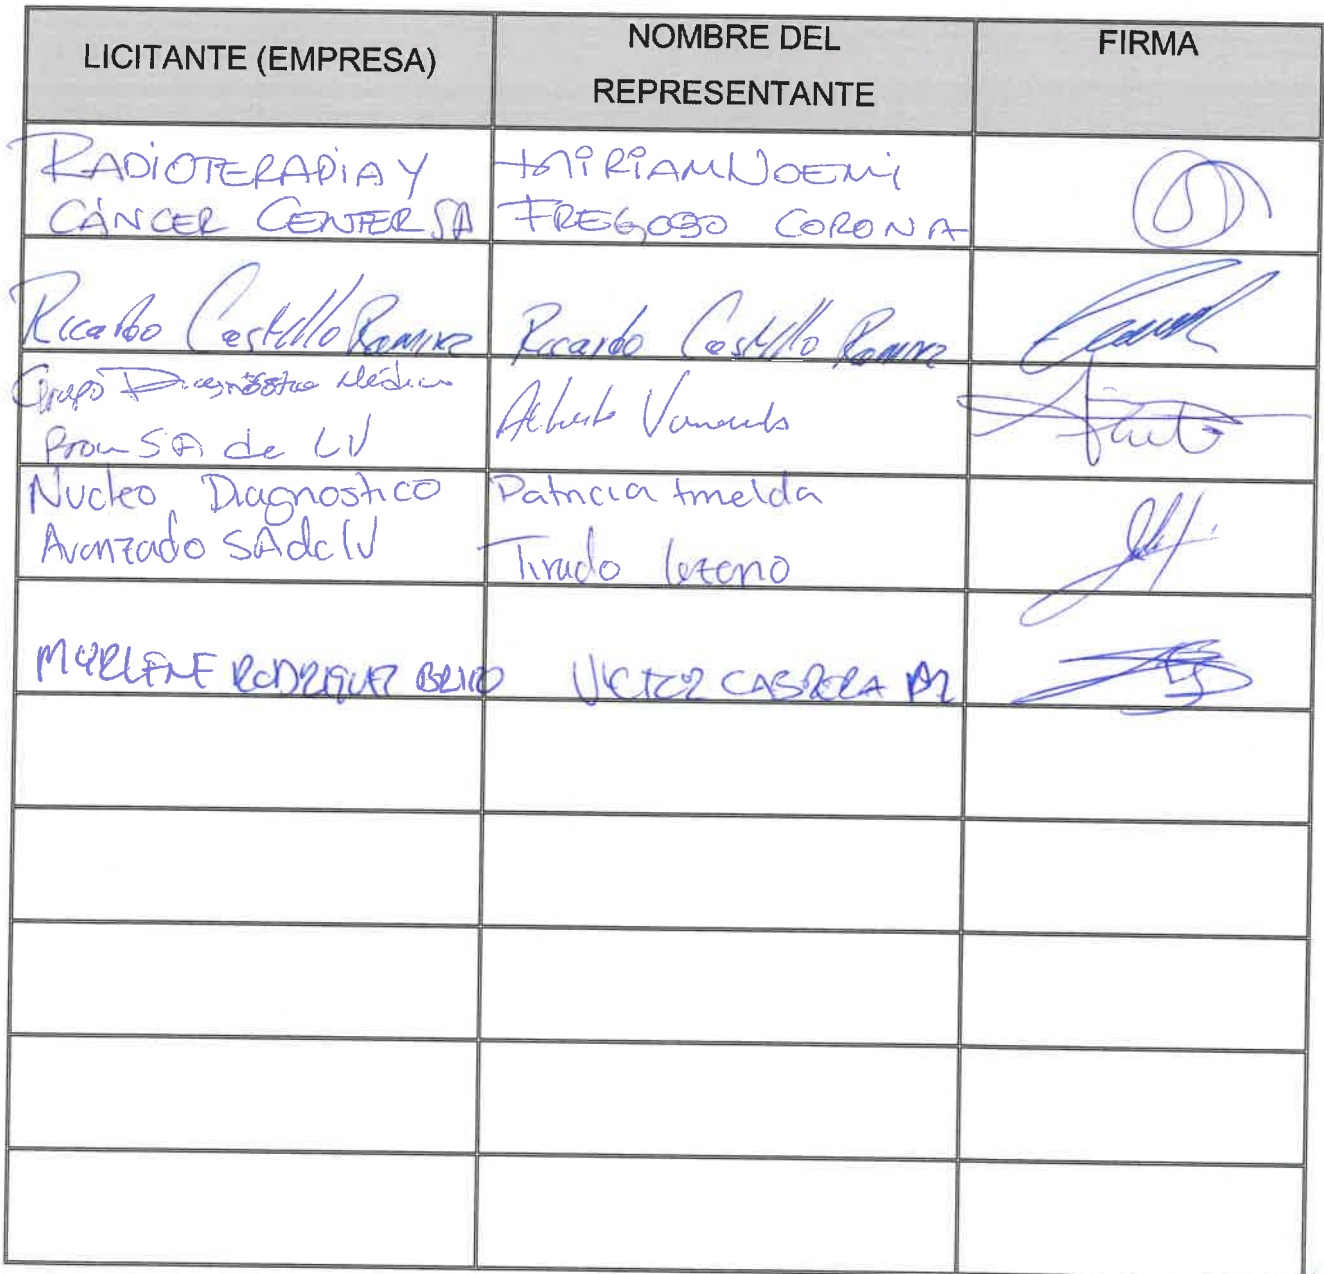 LICITANTE (EMPRESA)
NOMBRE DEL
REPRESENTANTE
FIRMA
RADIOTERAPIA Y
CÁNCER CENTER SA
MIRIAM NOEMI
FREGOSO CORONA
Ricardo Castillo Ramirez
Ricardo Castillo Ramirez
Grupo Diagnóstico Médico
Proa SA de CV
Nucleo Diagnostico
Avanzado SA de CV
Patricia Imelda
Tirado
MYRLENE RODRIGUEZ BRITO
VICTOR CABRERA